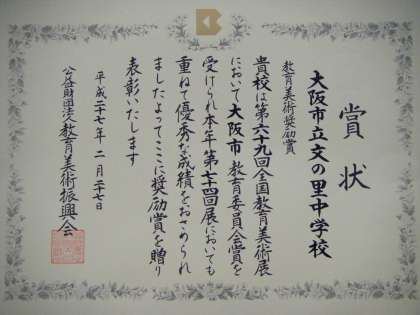 賞状
大阪市立文の里中学校
教育美術奨励賞
貴校は第六十九回全国教育美術展
において大阪市教育委員会賞を
受けられ本年第七十四回展においても
重ねて優秀な成績をおさめられ
ましたよってここに奨励賞を贈り
表彰いたします
平成二十七年二月二十七日
公益財団法人教育美術振興会